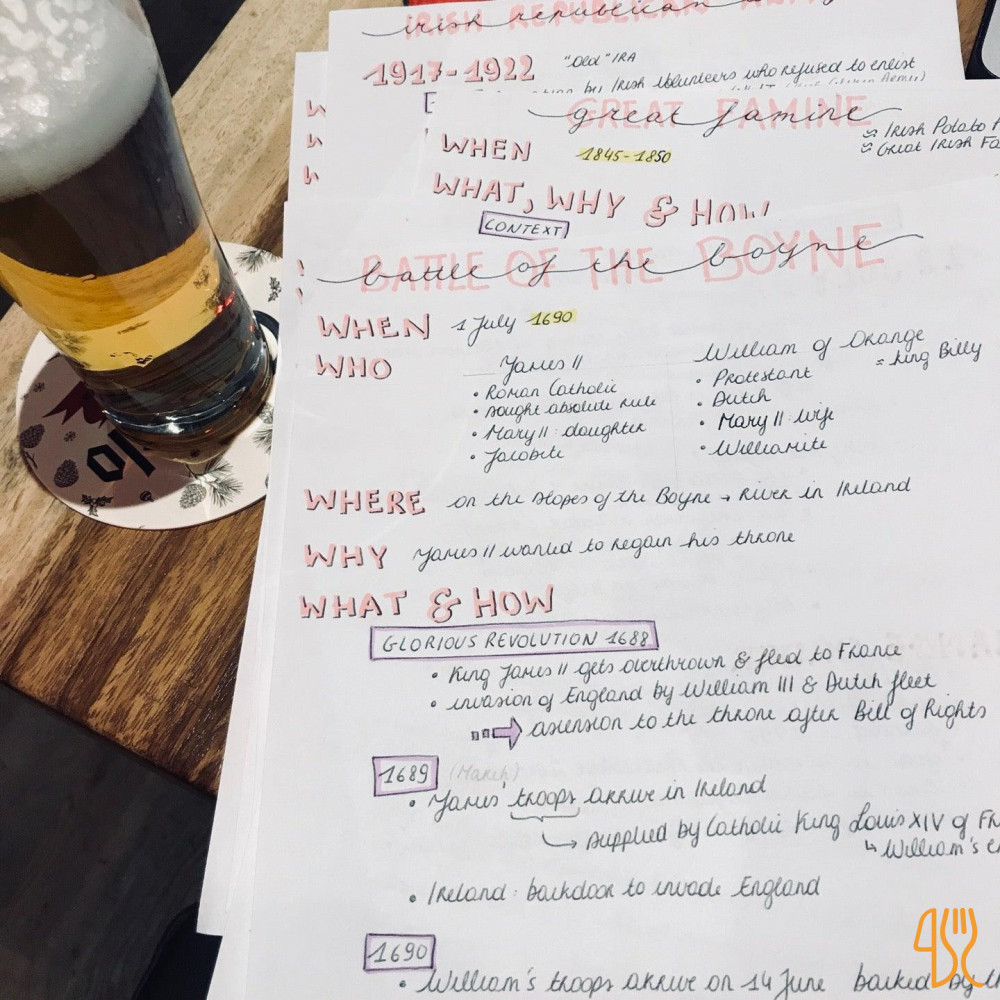 IRISH REPUBLICAN ARMY
irish republican army
1917-1922 "Old" IRA
by Irish Volunteers who refused to enlist
GREAT FAMINE
great famine
≈ Irish Potato F
≈ Great Irish Fa
WHEN 1845-1850
WHAT, WHY & HOW
CONTEXT
BATTLE OF THE BOYNE
battle of the boyne
WHEN 1 July 1690
WHO James II William of Orange
= King Billy
• Roman Catholic • Protestant
• sought absolute rule • Dutch
• Mary II: daughter • Mary II: wife
• Jacobite • Williamite
WHERE on the slopes of the Boyne → River in Ireland
WHY James II wanted to regain his throne
WHAT & HOW
GLORIOUS REVOLUTION 1688
• King James II gets overthrown & fled to France
• invasion of England by William III & Dutch fleet
ascension to the throne after Bill of Rights
1689 (March)
• James' troops arrive in Ireland
→ supplied by Catholic King Louis XIV of Fr
↳ William's e
• Ireland: backdoor to invade England
1690
• William's troops arrive on 14 June backed by